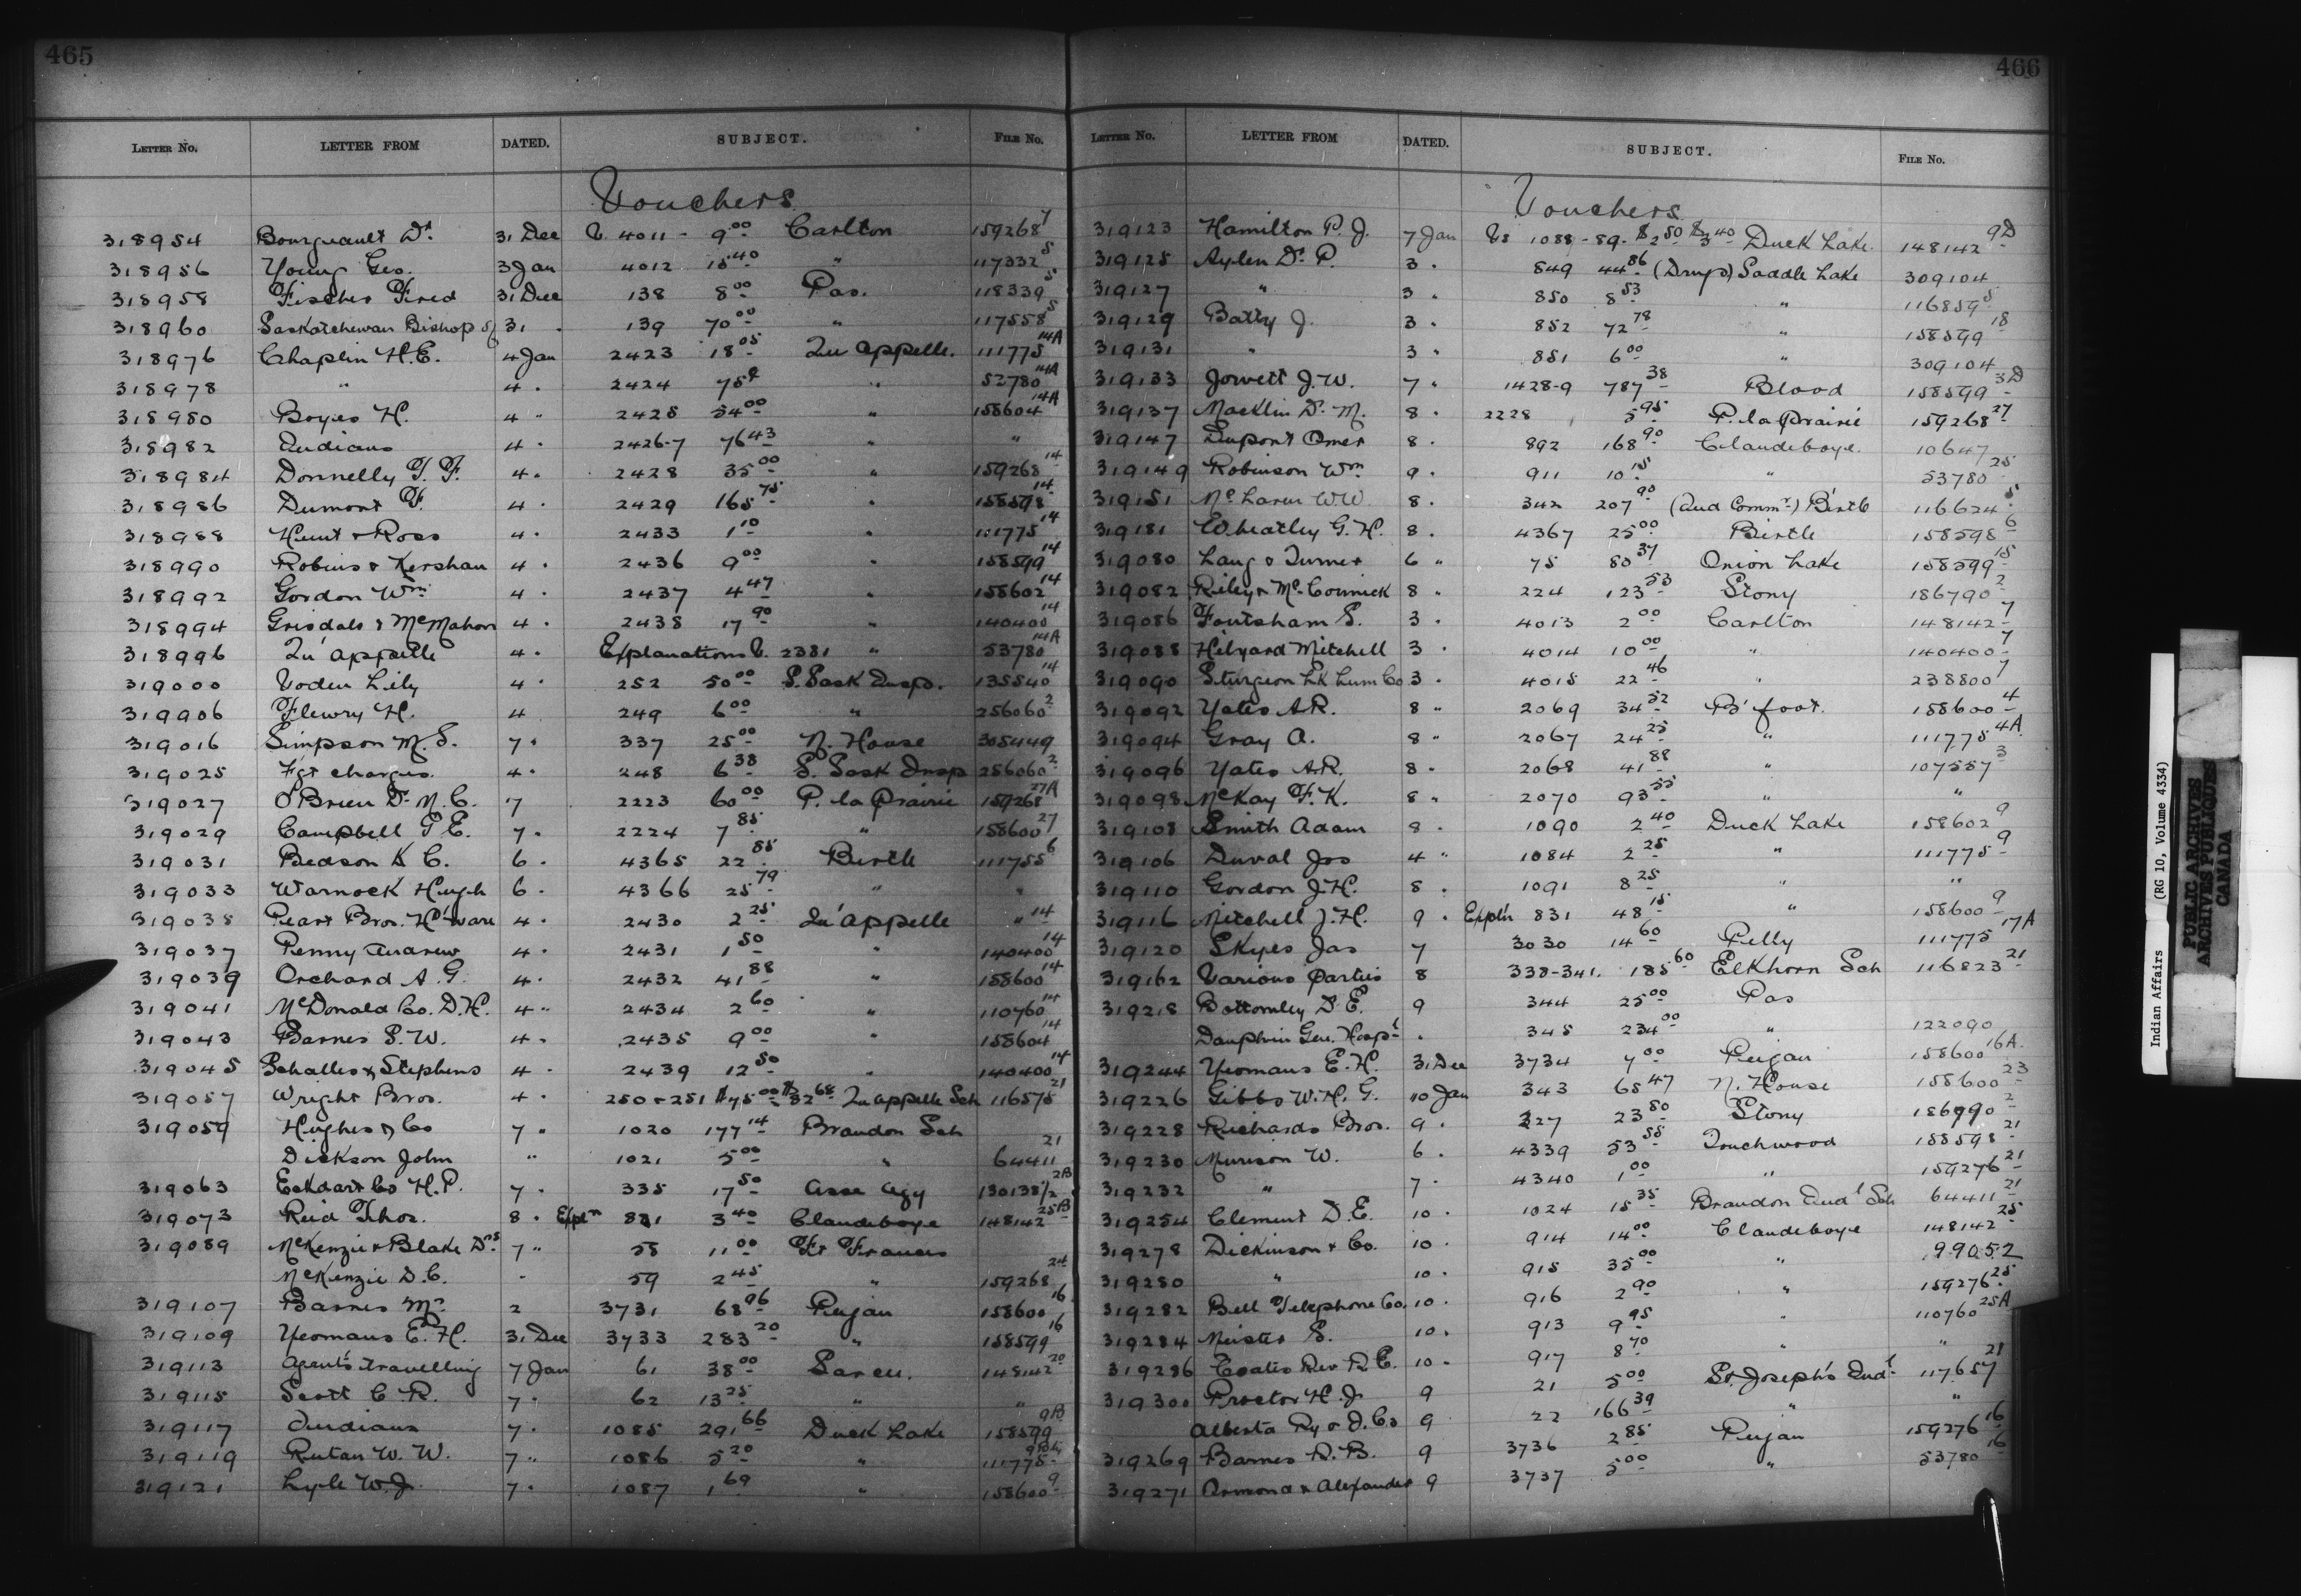 465
LETTER No. LETTER FROM DATED. SUBJECT. FILE No.
Vouchers
318954 Bourgeault Dr. 31 Dec V. 4011 - 9.00 Carlton 159268 7
318956 Young Geo. 3 Jan 4012 15.40 " 117332 5
318958 Fischer Fred 31 Dec 138 8.00 Pas. 118339 5
318960 Saskatchewan Bishop of 31 . 139 70.00 " 117558 5
318976 Chaplin H.E. 4 Jan 2423 18.05 Qu'appelle. 111775 14A
318978 " 4 . 2424 75¢ " 52780 14A
318980 Boyes H. 4 " 2425 54.00 " 158604 14A
318982 Indians 4 . 2426-7 76.43 " "
318984 Donnelly T. F. 4 . 2428 35.00 " 159268 14
318986 Dumont F. 4 . 2429 165.75 " 158598 14
318988 Hunt & Ross 4 . 2433 1.10 " 111775 14
318990 Robins & Kershaw 4 . 2436 9.00 " 158599 14
318992 Gordon Wm 4 . 2437 4.47 " 158602 14
318994 Grisdale & McMahon 4 . 2438 17.90 " 140400 14
318996 Qu'appelle 4 . Explanations V. 2381 " 53780 14A
319000 Voden Lily 4 . 252 50.00 S. Sask Insp. 135540 14
319906 Flewry H. 4 249 6.00 " 256060 2
319016 Simpson M.S. 7 . 337 25.00 N. House 305449
319025 Fgt charges. 4 . 248 6.38 S. Sask Insp 256060 2
319027 O'Brien Dr. N.C. 7 2223 60.00 P. la Prairie 159268 27A
319029 Campbell P E. 7 . 2224 7.85 " 158600 27
319031 Bedson K C. 6 . 4365 22.85 Birtle 111755 6
319033 Warnock Hugh 6 . 4366 25.79 " "
319035 Peart Bros. H'ware 4 . 2430 2.25 Qu'appelle " 14
319037 Penny Andrew 4 . 2431 1.50 " 140400 14
319039 Orchard A. G. 4 . 2432 41.88 " 158600 14
319041 McDonald Co. D.H. 4 " 2434 2.60 " 110760 14
319043 Barnes S. W. 4 . 2435 9.00 " 158604 14
319045 Schalles & Stephens 4 . 2439 12.50 " 140400 14
319057 Wright Bros. 4 . 250 & 251 $75.00 $32.68 Qu appelle Sch 116575 21
319059 Hughes & Co 7 " 1020 177.14 Brandon Sch
Dickson John " 1021 5.00 " 64411 21
319063 Eckdart Co H.P. 7 . 335 17.50 Asse Agy 130138 1/2 2B
319073 Reid Thos. 8 . Expln 831 3.40 Clandeboye 148142 25B
319089 McKenzie & Blake Drs 7 " 58 11.00 Ft Frances
McKenzie D.C. " 59 2.45 " 159268 24
319107 Barnes Mr. 2 3731 68.96 Peigan 158600 16
319109 Yeomans E. H. 31 Dec 3733 283.20 " 158599 16
319113 Agent's travelling 7 Jan 61 38.00 Sarcee. 148142 20
319115 Scott C. R. 7 . 62 13.25 " "
319117 Indians 7 . 1085 291.66 Duck Lake 158599 9B
319119 Rutan W. W. 7 " 1086 5.20 " 111775
319121 Lyle W.J. 7 . 1087 1.69 " 158600 9
466
LETTER No. LETTER FROM DATED. SUBJECT. FILE No.
Vouchers
319123 Hamilton P. J. 7 Jan Vs 1088-89. $2.50 $3.40 Duck Lake. 148142 9D
319125 Aylen Dr. P. 3 . 849 44.86 (Drugs) Saddle Lake 309104
319127 " 3 . 850 8.53 " 116859 5
319129 Batty J. 3 . 852 72.78 " 158599 18
319131 " 3 . 851 6.00 " 309104
319133 Jowett J.W. 7 " 1428-9 787.38 Blood 158599 3D
319137 Macklin Dr. M. 8 . 2228 5.95 P. la Prairie 159268 27
319147 Dupont Omer 8 . 892 168.90 Clandeboye. 10647
319149 Robinson Wm 9 . 911 10.15 " 53780 25
319151 McLaren W W 8 . 342 207.90 (Ind Commr) Birtle 116624 5
319181 Wheatley G. H. 8 . 4367 25.00 Birtle 158598 6
319080 Lang & Turner 6 " 75 80.37 Onion Lake 158599 15
319082 Riley & McCormick 8 " 224 123.53 Stony 186790 2
319086 Foutsham S. 3 . 4013 2.00 Carlton 148142 7
319088 Hilyard Mitchell 3 . 4014 10.00 " 140400 7
319090 Sturgeon Lk Lum Co 3 . 4015 22.46 " 238800 7
319092 Yates A.R. 8 " 2069 34.52 B'foot. 158600 4
319094 Gray A. 8 " 2067 24.25 " 111775 4A
319096 Yates A.R. 8 . 2068 41.88 " 107557 3
319098 McKay F. K. 8 " 2070 93.55 " "
319108 Smith Adam 8 . 1090 2.40 Duck Lake 158602 9
319106 Duval Jos 4 " 1084 2.25 " 111775 9
319110 Gordon J.H. 8 . 1091 8.25 " "
319116 Mitchell J. H. 9 . Expl'n 831 48.15 " 158600 9
319120 Skyes Jas 7 3030 14.60 Pelly 111775 17A
319162 Various Parties 8 338-341. 185.60 Elkhorn Sch 116823 21
319218 Bottomley D. E. 9 344 25.00 Pas
Dauphin Gen. Hosp'l . 345 234.00 " 122090
319244 Yeomans E. H. 31 Dec 3734 7.00 Peigan 158600 16A
319226 Gibbs W. H. G. 10 Jan 343 65.47 N. House 158600 23
319228 Richards Bros. 9 . 327 23.80 Stony 186790 2
319230 Murison W. 6 . 4339 53.55 Touchwood 158598 21
319232 " 7 . 4340 1.00 " 159276 21
319254 Clement D.E. 10 . 1024 15.35 Brandon Ind'l Sch 64411 21
319278 Dickinson & Co. 10 . 914 14.00 Clandeboye 148142 25
319280 " 10 . 915 35.00 " 99052
319282 Bell Telephone Co. 10 . 916 2.90 " 159276 25
319284 Meister S. 10 . 913 9.95 " 110760 25A
319286 Coates Rev R. E. 10 . 917 8.70 " "
319300 Proctor H. J. 9 21 5.00 St. Joseph's Ind'l 117657 21
Alberta Ry & I. Co 9 22 166.39 " "
319269 Barnes R. B. 9 3736 2.85 Peigan 159276 16
319271 Ormond & Alexander 9 3737 5.00 " 53780 16
Indian Affairs (RG 10, Volume 4334)
PUBLIC ARCHIVES
ARCHIVES PUBLIQUES
CANADA